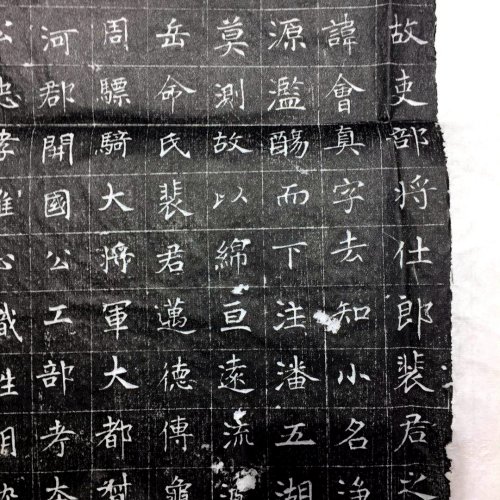 故吏部将仕郎裴君之
諱會真字去知小名
源濫觴而下注潘五湖
莫測故以綿亘遠流
岳命氏裴君邁德傳龜
周驃騎大將軍大都
河郡開國公工部考
忠孝雅心識性明